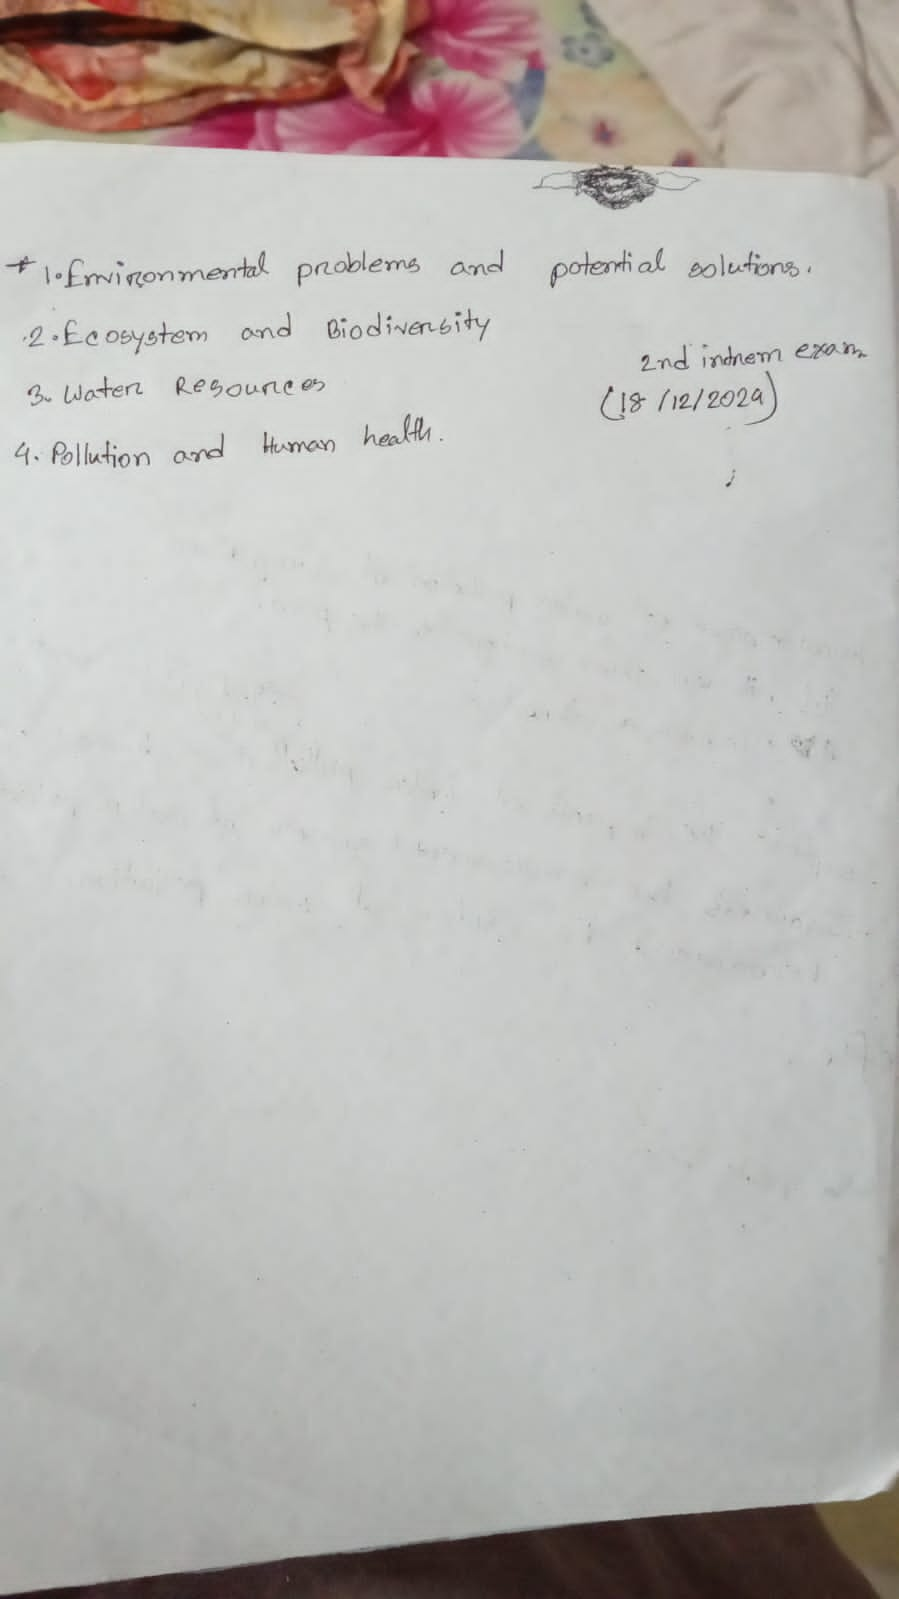 * 1. Environmental problems and potential solutions.
2. Ecosystem and Biodiversity
3. Water Resources
4. Pollution and Human health.
2nd intrem exam
(18/12/2024)